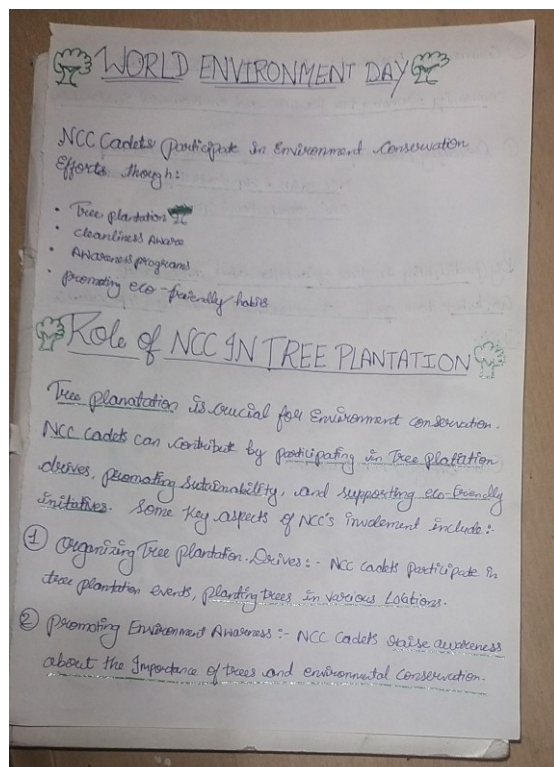 WORLD ENVIRONMENT DAY
NCC Cadets participate in Environment Conservation
Efforts though:
• Tree plantation
• cleanliness Aware
• Awareness programs
• promoting eco-friendly habits
Role of NCC IN TREE PLANTATION
Tree planatation is crucial for Environment conservation.
NCC cadets can contribut by participating in Tree platation
drives, promoting sutainability, and supporting eco-friendly
initatives. Some Key aspects of NCC's involement include:-
① Organizing Tree Plantation Drives:- NCC cadets participate in
tree plantation events, planting trees in various Locations.
② Promoting Environment Awareness:- NCC Cadets raise awareness
about the Importance of trees and environmental conservation.